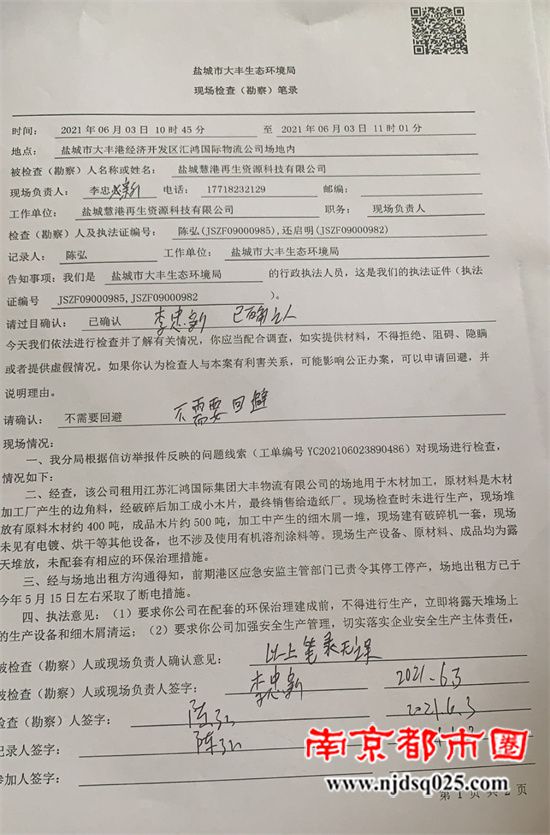 盐城市大丰生态环境局
现场检查（勘察）笔录
时间： 2021 年 06 月 03 日 10 时 45 分 至 2021 年 06 月 03 日 11 时 01 分
地点： 盐城市大丰港经济开发区汇鸿国际物流公司场地内
被检查（勘察）人名称或姓名： 盐城慧港再生资源科技有限公司
现场负责人： 李忠新 电话： 17718232129 邮编：
工作单位： 盐城慧港再生资源科技有限公司 职务： 现场负责人
检查（勘察）人及执法证编号： 陈弘(JSZF09000985),还启明(JSZF09000982)
记录人： 陈弘 工作单位： 盐城市大丰生态环境局
告知事项：我们是 盐城市大丰生态环境局 的行政执法人员，这是我们的执法证件（执法
证编号 JSZF09000985,JSZF09000982 ）。
请过目确认： 已确认 李忠新 已确认
今天我们依法进行检查并了解有关情况，你应当配合调查，如实提供材料，不得拒绝、阻碍、隐瞒
或者提供虚假情况。如果你认为检查人与本案有利害关系，可能影响公正办案，可以申请回避，并
说明理由。
请确认： 不需要回避 不需要回避
现场情况：
一、我分局根据信访举报件反映的问题线索（工单编号 YC202106023890486）对现场进行检查，
情况如下：
二、经查，该公司租用江苏汇鸿国际集团大丰物流有限公司的场地用于木材加工，原材料是木材
加工厂产生的边角料，经破碎后加工成小木片，最终销售给造纸厂。现场检查时未进行生产，现场堆
放有原料木材约 400 吨，成品木片约 500 吨，加工中产生的细木屑一堆，现场建有破碎机一套，现场
未见有电镀、烘干等其他设备，也不涉及使用有机溶剂涂料等。现场生产设备、原材料、成品均为露
天堆放，未配套有相应的环保治理措施。
三、经与场地出租方沟通得知，前期港区应急安监主管部门已责令其停工停产，场地出租方已于
今年 5 月 15 日左右采取了断电措施。
四、执法意见：（1）要求你公司在配套的环保治理建成前，不得进行生产，立即将露天堆场上
的生产设备和细木屑清运；（2）要求你公司加强安全生产管理，切实落实企业安全生产主体责任，
被检查（勘察）人或现场负责人确认意见： 以上笔录无误
被检查（勘察）人或现场负责人签字： 李忠新 2021.6.3
检查（勘察）人签字： 陈弘 2021.6.3
记录人签字： 陈弘
参加人签字：
南京都市圈
www.njdsq025.com
第 1 页 共 2 页